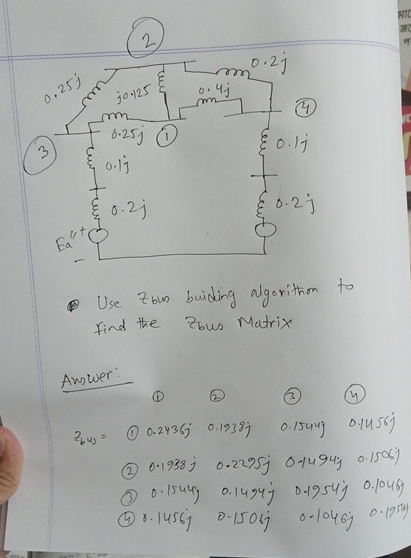 2
0.25j
j0.125
0.2j
0.4j
4
3
0.25j
1
0.1j
0.1j
0.2j
0.2j
Ea" +
-
Use Zbus buiding algorithm to
find the Zbus Matrix
Answer:
1 2 3 4
Zbus = 1 0.2436j 0.1938j 0.1544j 0.1456j
2 0.1938j 0.2295j 0.1494j 0.1506j
3 0.1544j 0.1494j 0.1954j 0.1046j
4 0.1456j 0.1506j 0.1046j